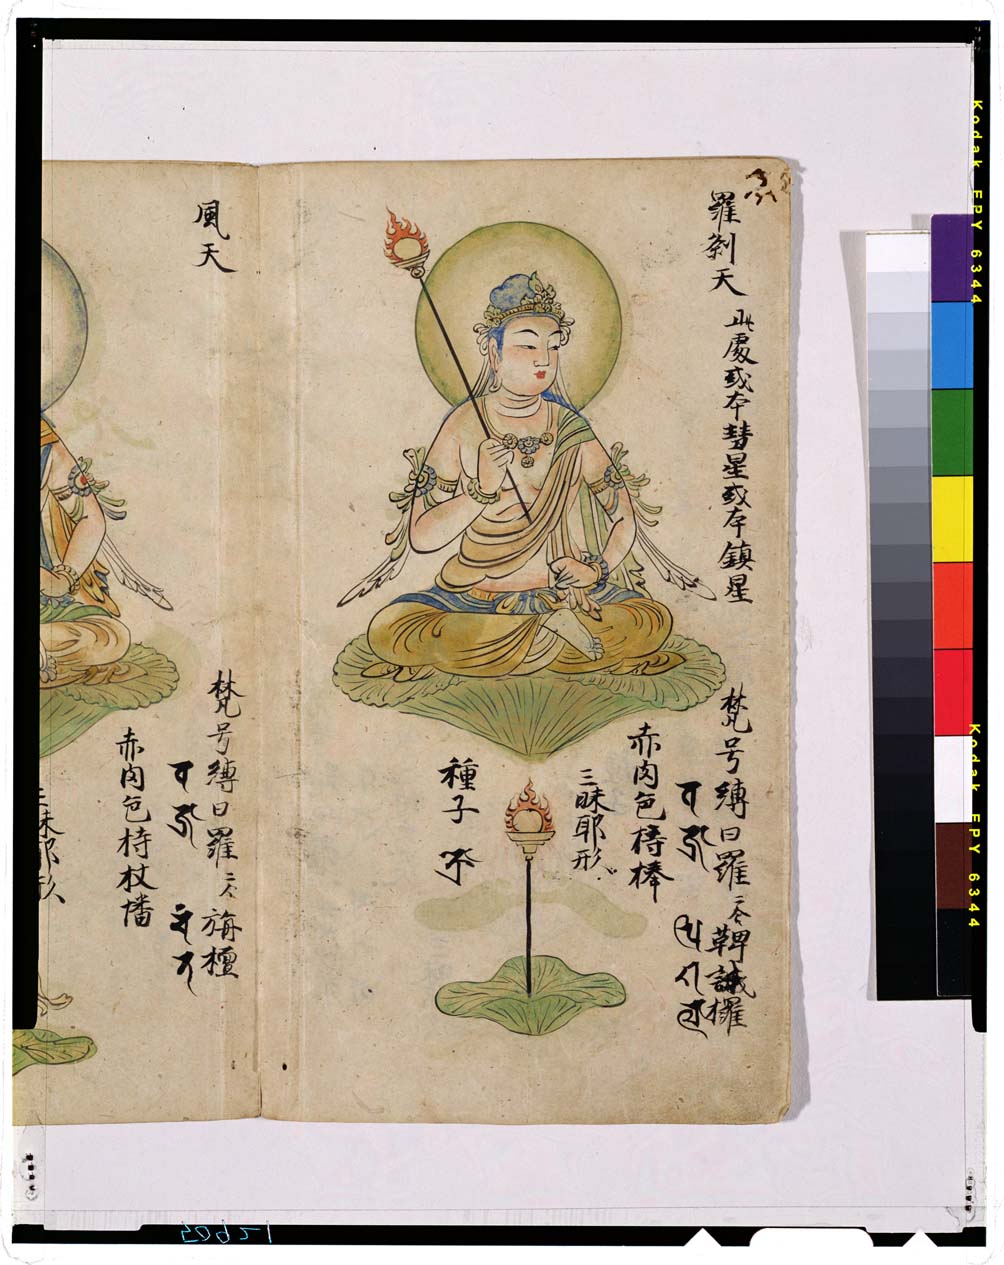 羅刹天 此處或本彗星或本鎮星
梵号縛日羅二合鞞誐欏
赤肉色持棒
三昧耶形
種子
風天
梵号縛日羅二合旃檀
赤肉色持杖幡
三昧耶形
Kodak EPY 6344
Kodak EPY 6344